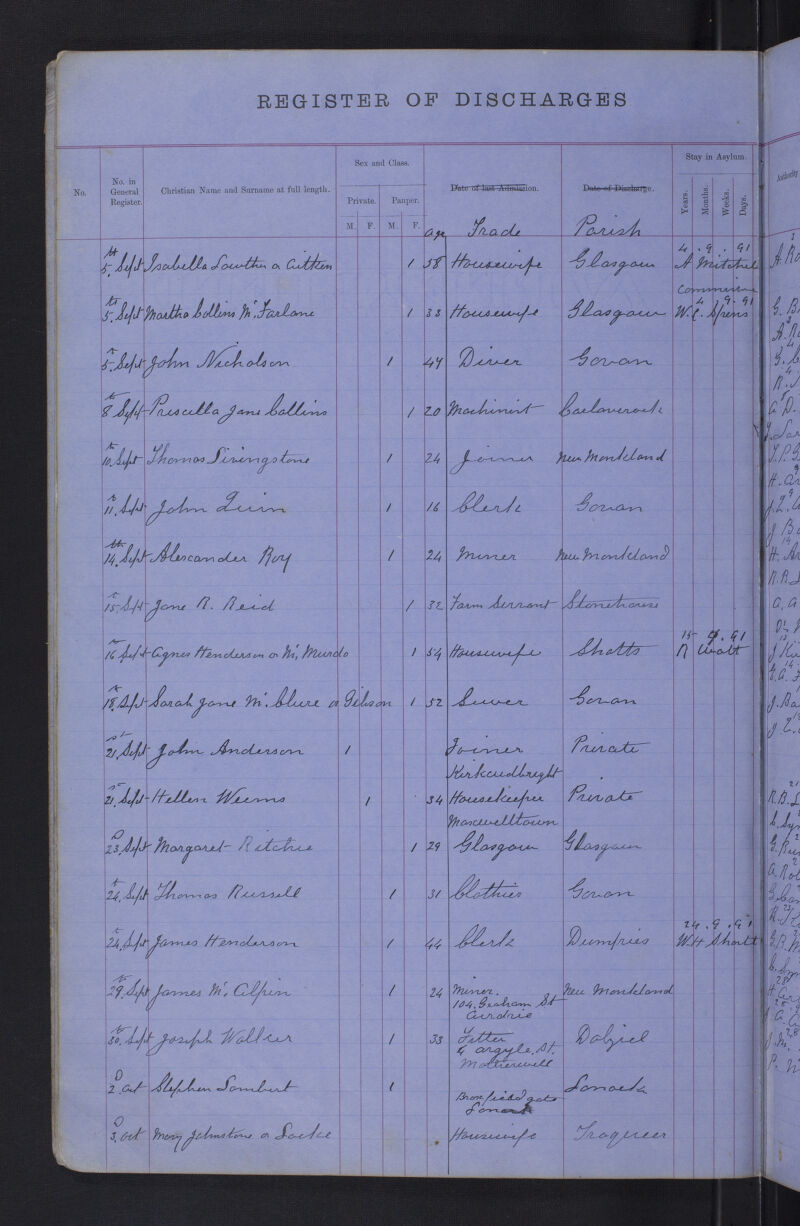 REGISTER OF DISCHARGES
No. No. in General Register. Christian Name and Surname at full length. Sex and Class. Date of last Admission. Date of Discharge. Stay in Asylum.
Private. Pauper. Years. Months. Weeks. Days.
M. F. M. F. age Trade Parish
4 . 9 . 91
5th Sept Isabella Lowther or Aitken 1 58 Housewife Glasgow A Mitchel
Commissione
4 . 9 . 91
5th Sept Martha Collins McFarlane 1 33 Housewife Glasgow W.C. Spens
5th Sept John Nicholson 1 47 Diver Govan
8th Sept Priscilla Jane Collins 1 20 Machinist Carlaverock
10th Sept Thomas Livingstone 1 24 Joiner New Monkland
11th Sept John Quinn 1 16 Clerk Govan
14th Sept Alexander Roy 1 24 Miner New Monkland
15th Sept Jane R. Reid 1 32 Farm Servant Stonehouse
15 . 9 . 91
16th Sept Agnes Henderson or McMurdo 1 54 Housewife Shotts R Watt
18th Sept Sarah Jane McClure or Gibson 1 52 Sewer Govan
21st Sept John Anderson 1 Joiner Private
Kirkcudbright
21st Sept Hellen Weems 1 34 Housekeeper Private
Maxwelltown
23D Sept Margaret Ritchie 1 29 Glasgow Glasgow
24th Sept Thomas Russell 1 31 Clothier Govan
24 . 9 . 91
24th Sept James Henderson 1 44 Clerk Dumfries W.H Short
29th Sept James McAlpin 1 24 Miner. New Monkland
104. Graham St
Airdrie
30th Sept Joseph Walker 1 33 Fitter Dalziel
Argyle. St.
Motherwell
2D Oct Stephen Lambert 1 Lanark
gate
Lanark
3D Oct Mary Johnstone or Locke Housewife Troqueer